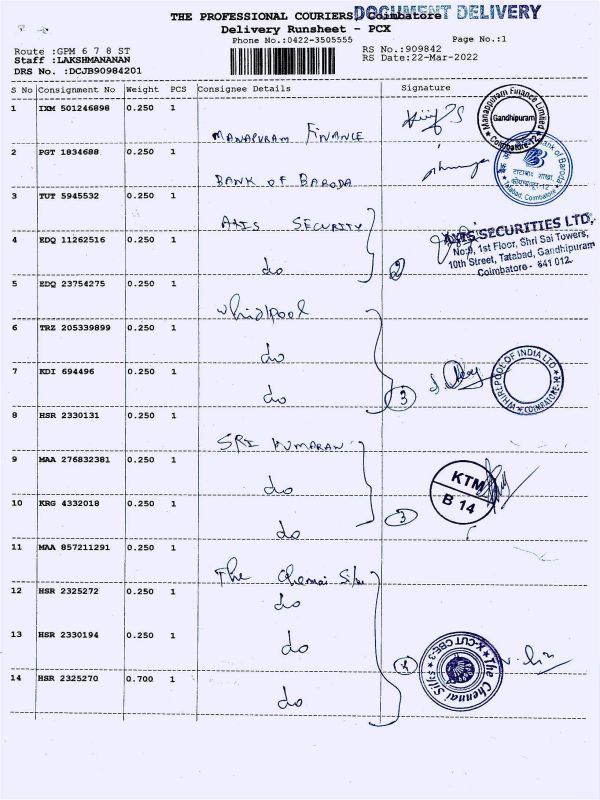 THE PROFESSIONAL COURIERS, Coimbatore
DOCUMENT DELIVERY
Delivery Runsheet - PCX
Phone No.:0422-3505555
Page No.:1
Route :GPM 6 7 8 ST
Staff :LAKSHMANANAN
DRS No. :DCJB90984201
RS No.:909842
RS Date:22-Mar-2022
S No Consignment No Weight PCS Consignee Details Signature
1 IXM 501246898 0.250 1
MANAPURAM FINANCE
Manappuram Finance Limited
Gandhipuram
Coimbatore-12
2 PGT 1834688 0.250 1
BANK OF BARODA
Bank of Baroda
टाटाबाद शाखा
कोयम्बतूर-12
Tatabad, Coimbatore
3 TUT 5945532 0.250 1
AXIS SECURITY
AXIS SECURITIES LTD,
No:6, 1st Floor, Shri Sai Towers,
10th Street, Tatabad, Gandhipuram
Coimbatore - 641 012.
4 EDQ 11262516 0.250 1
do
2
5 EDQ 23754275 0.250 1
Whirlpool
6 TRZ 205339899 0.250 1
do
7 KDI 694496 0.250 1
do
3
WHIRLPOOL OF INDIA LTD
COIMBATORE
8 HSR 2330131 0.250 1
SRI KUMARAN
9 MAA 276832381 0.250 1
do
KTM
B 14
10 KRG 4332018 0.250 1
do
3
11 MAA 857211291 0.250 1
The Chennai Silks
12 HSR 2325272 0.250 1
do
13 HSR 2330194 0.250 1
do
4
The Chennai Silks
X-CUT CBE-3
14 HSR 2325270 0.700 1
do